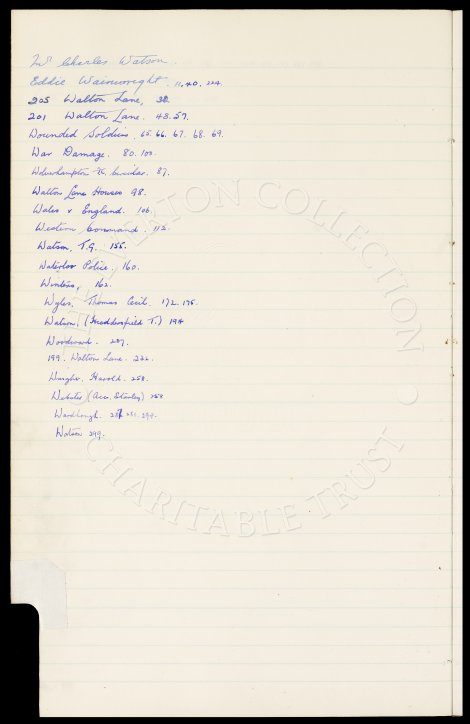 Mr Charles Watson.
Eddie Wainwright. 11, 40, 224.
205 Walton Lane, 38.
201 Walton Lane. 43. 57.
Wounded Soldiers, 65. 66. 67. 68. 69.
War Damage. 80. 100.
Wolverhampton Circular. 87.
Walton Lane Houses 98.
Wales v England. 106.
Western Command. 112.
Watson, T.G. 155.
Waterloo Police, 160.
Winters, 162.
Wyles, Thomas Cecil. 172. 175.
Watson, (Huddersfield T.) 194
Woodward. 207.
199. Walton Lane. 222.
Harold. 258.
Webster (Acc. Stanley) 258
299.
Watson 299.
EVERTON COLLECTION
CHARITABLE TRUST